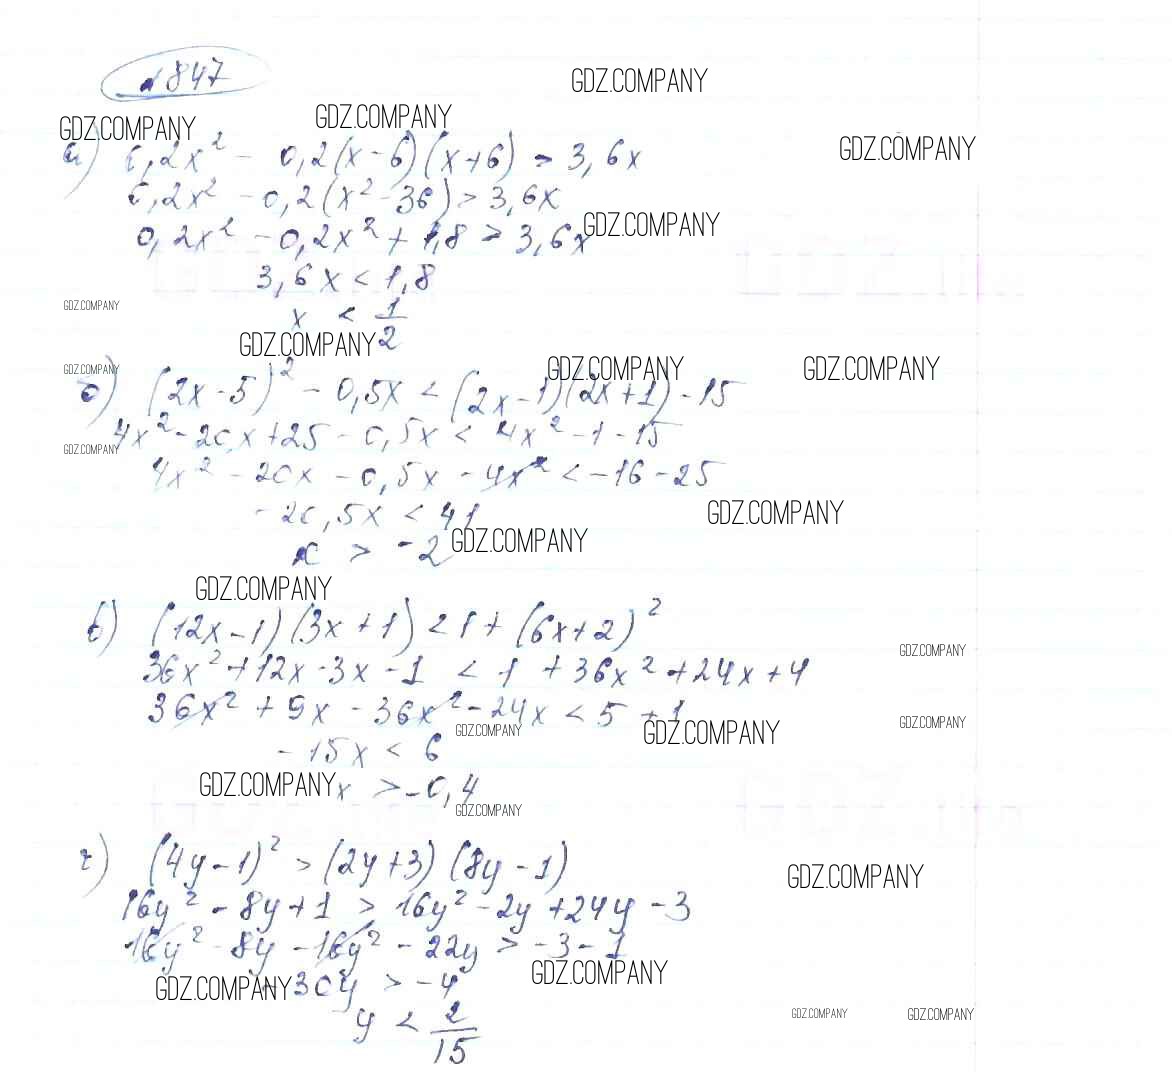 №847
GDZ.COMPANY
GDZ.COMPANY
GDZ.COMPANY
GDZ.COMPANY
а) 0,2x² - 0,2(x-6)(x+6) > 3,6x
0,2x² - 0,2(x²-36) > 3,6x
GDZ.COMPANY
0,2x² - 0,2x² + 1,8 > 3,6x
3,6x < 1,8
GDZ.COMPANY
x < 1/2
GDZ.COMPANY
GDZ.COMPANY
GDZ.COMPANY
GDZ.COMPANY
б) (2x-5)² - 0,5x < (2x-1)(2x+1) - 15
4x² - 20x + 25 - 0,5x < 4x² - 1 - 15
GDZ.COMPANY
4x² - 20x - 0,5x - 4x² < -16 - 25
-20,5x < 41
GDZ.COMPANY
x > -2
GDZ.COMPANY
GDZ.COMPANY
в) (12x-1)(3x+1) < 1 + (6x+2)²
GDZ.COMPANY
36x² + 12x - 3x - 1 < 1 + 36x² + 24x + 4
36x² + 9x - 36x² - 24x < 5 + 1
GDZ.COMPANY
GDZ.COMPANY
GDZ.COMPANY
-15x < 6
GDZ.COMPANY
x > -0,4
GDZ.COMPANY
г) (4y-1)² > (2y+3)(8y-1)
GDZ.COMPANY
16y² - 8y + 1 > 16y² - 2y + 24y - 3
16y² - 8y - 16y² - 22y > -3 - 1
GDZ.COMPANY
GDZ.COMPANY
-30y > -4
y < 2/15
GDZ.COMPANY
GDZ.COMPANY